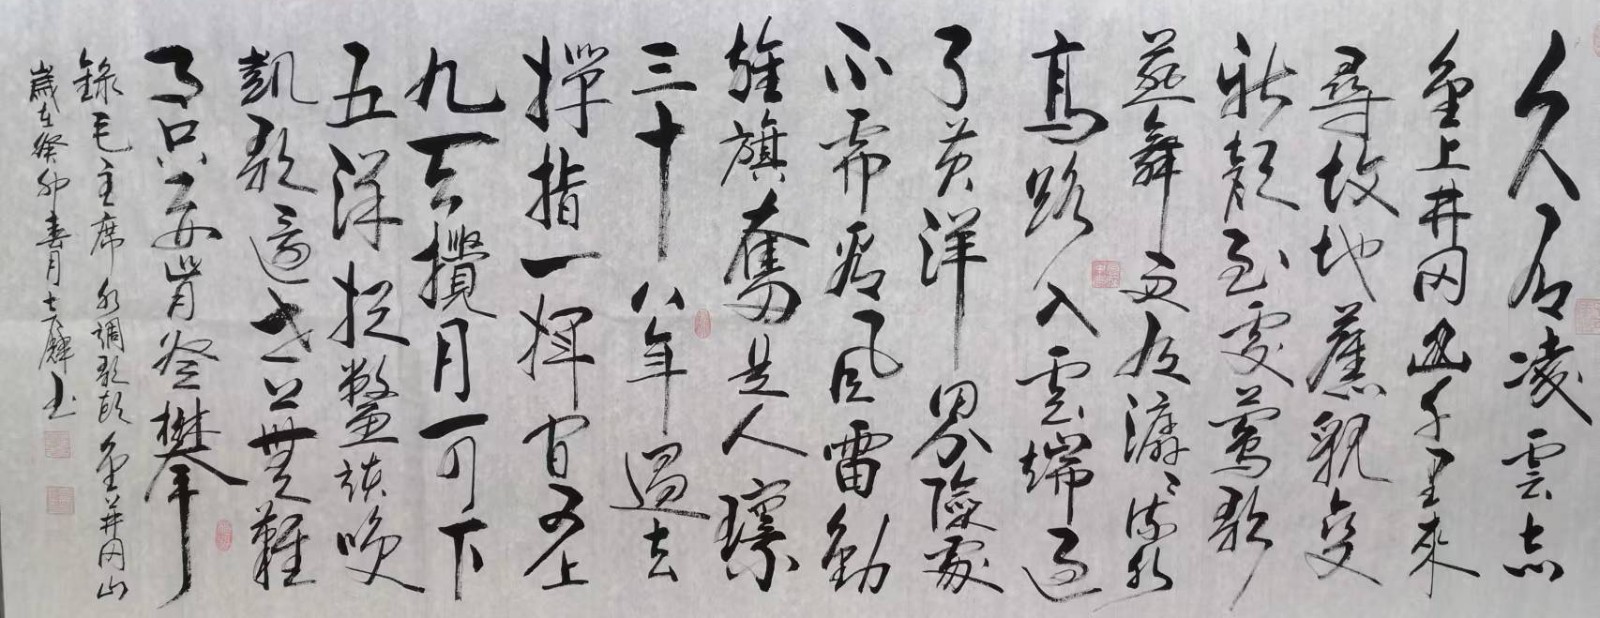 久有凌雲志
重上井冈山千里來
尋故地舊貌變
新顔到處鶯歌
燕舞更有潺潺流水
高路入雲端過
了黄洋界險處
不需看風雷動
旌旗奮是人寰
三十八年過去
彈指一揮間可上
九天攬月可下
五洋捉鱉談笑
凱歌還世上無難
事只要肯登攀
錄毛主席水調歌頭重上井冈山
歲在癸卯春月士麟书